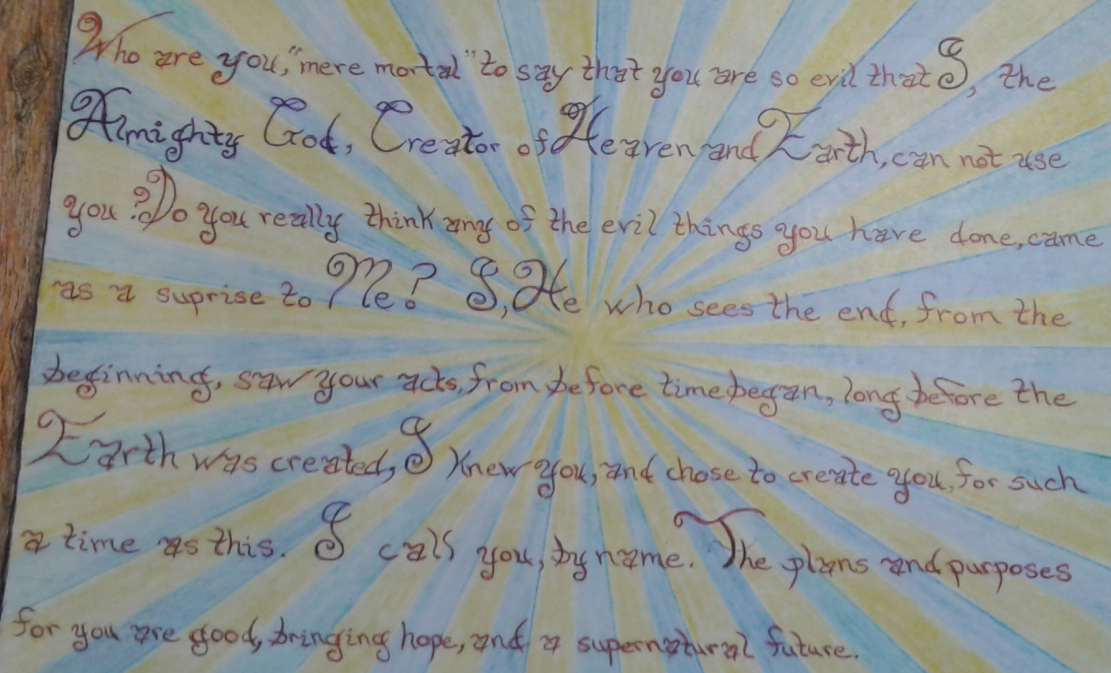 Who are you, "mere mortal" to say that you are so evil that I, the
Almighty God, Creator of Heaven and Earth, can not use
you? Do you really think any of the evil things you have done, came
as a suprise to Me? I, He who sees the end, from the
beginning, saw your acts, from before time began, long before the
Earth was created, I knew you, and chose to create you, for such
a time as this. I call you, by name. The plans and purposes
for you are good, bringing hope, and a supernatural future.